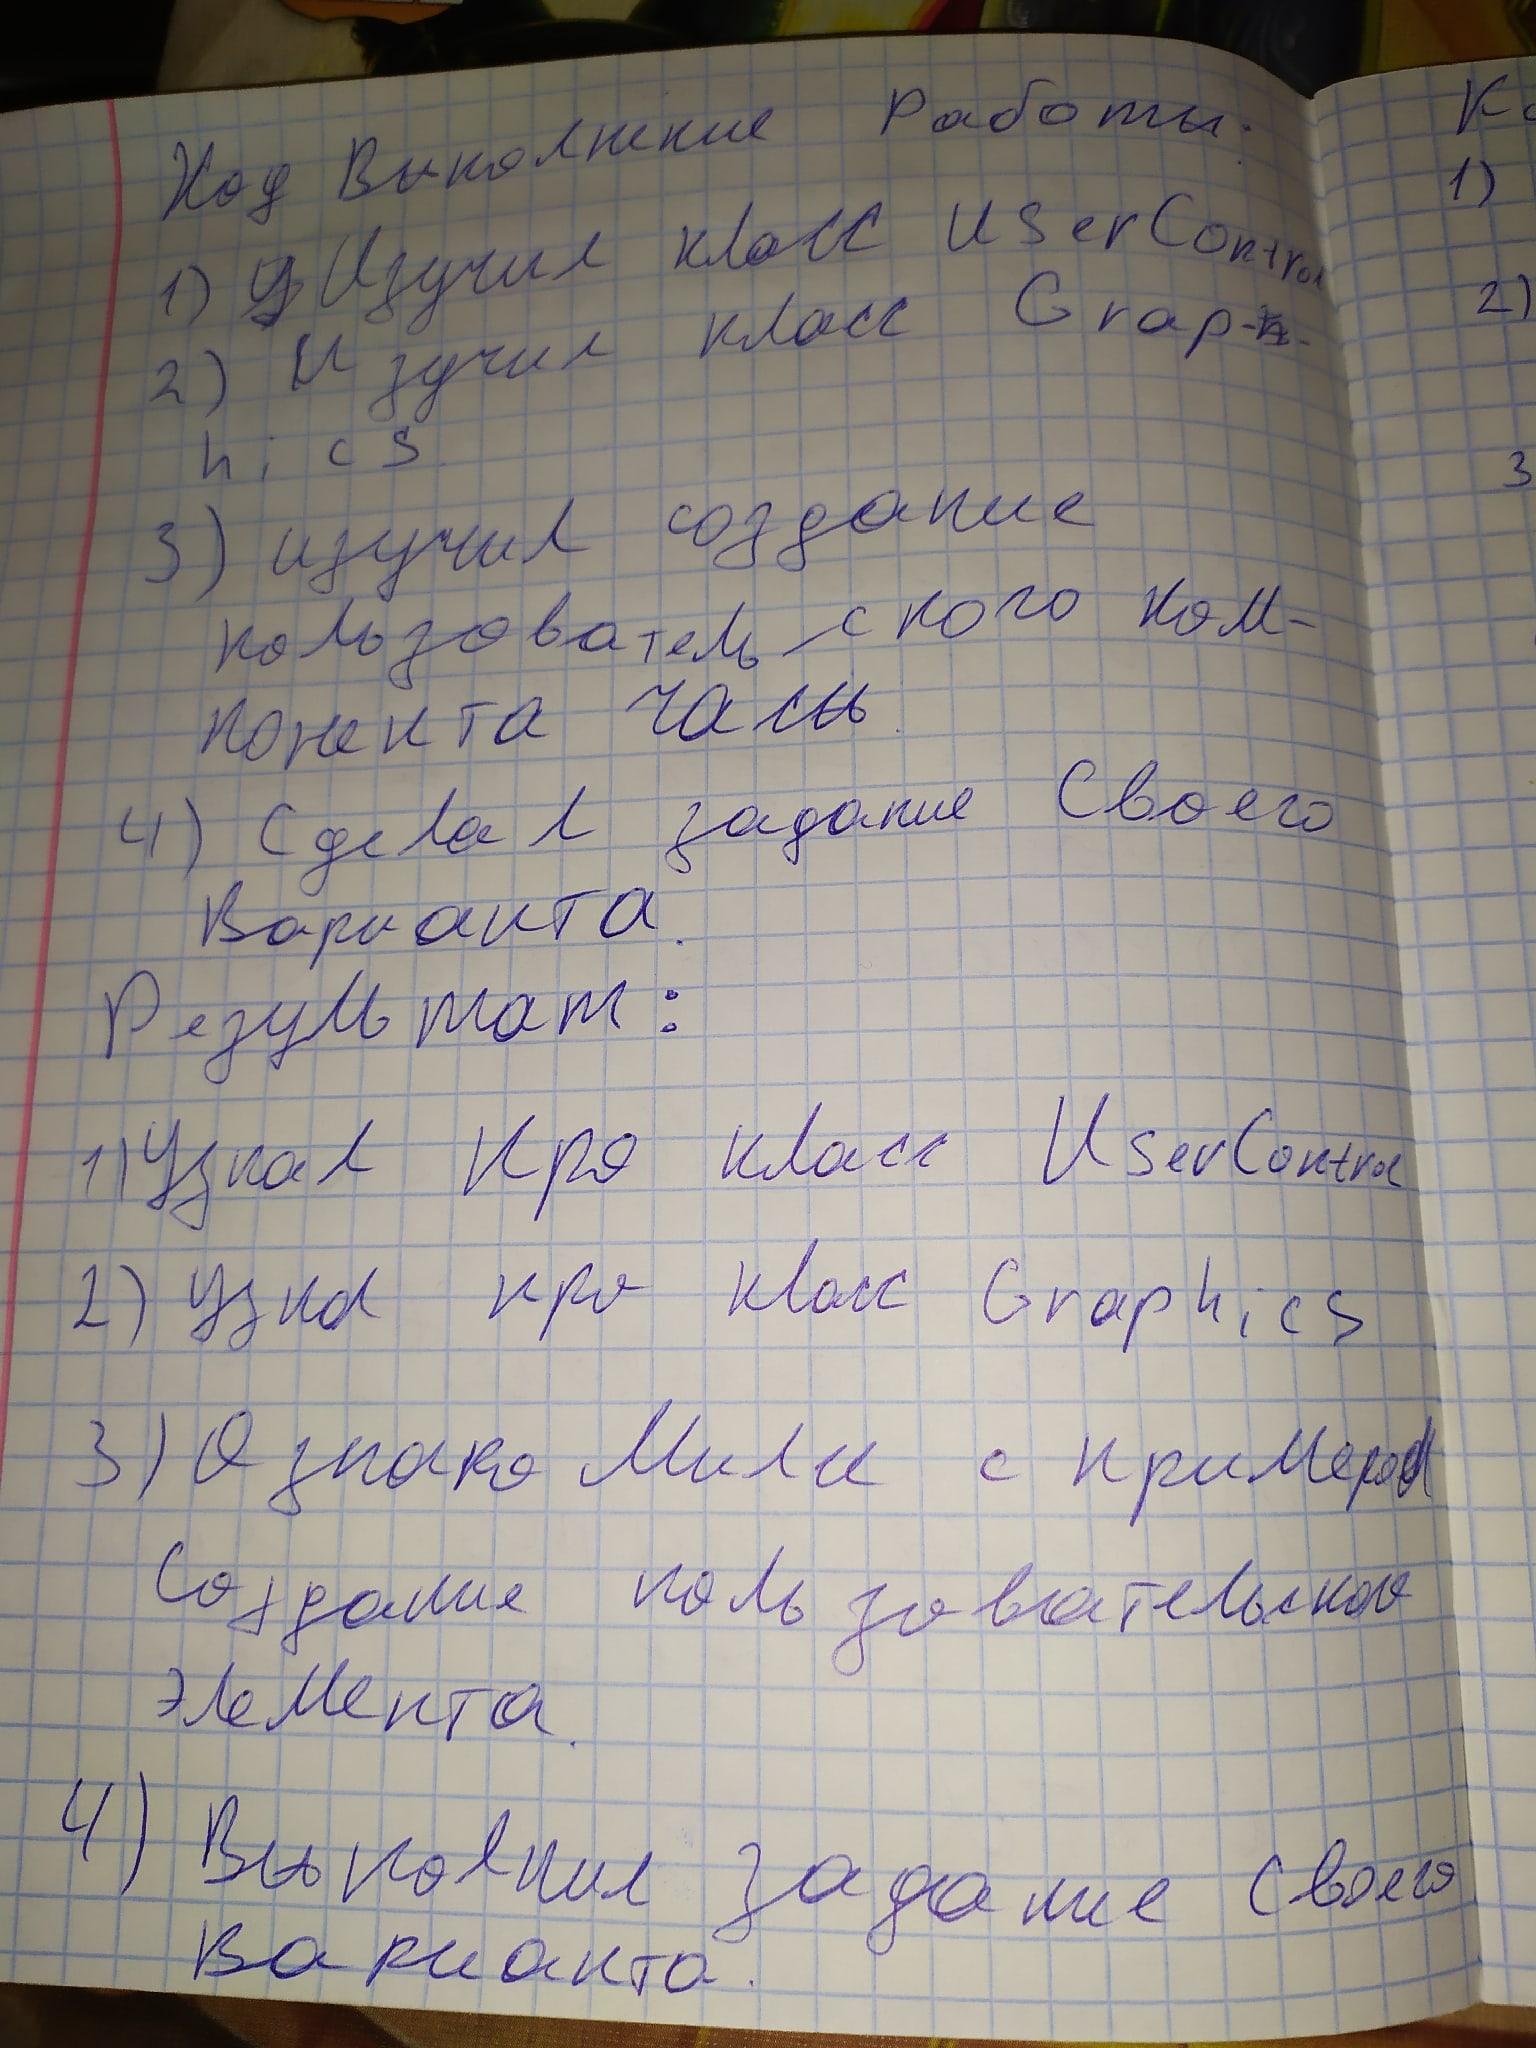 Ход Выполнение Работы:
1) Изучил класс UserControl
2) Изучил класс Grap-
hics
3) изучил создание
пользовательского ком-
понента часы.
4) Сделал задание Своего
Варианта.
Результат:
1) Узнал про класс UserControl
2) Узнал про класс Graphics
3) Ознакомился с примером
Создание пользовательского
элемента.
4) Выполнил задание Своего
Варианта.
1)
2)
3